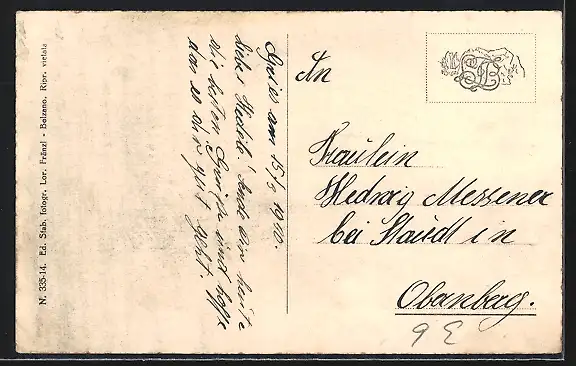 N. 335-14. Ed. Stab. fotogr. Lor. Fränzl - Bolzano. Ripr. vietata
Gries am 15/5 1940.
Liebe Hedwig! Sende dir heute
die besten Grüße und hoffe
das es dir gut geht.
An
Fräulein
Hedwig Messener
bei Staudl in
Obenberg.